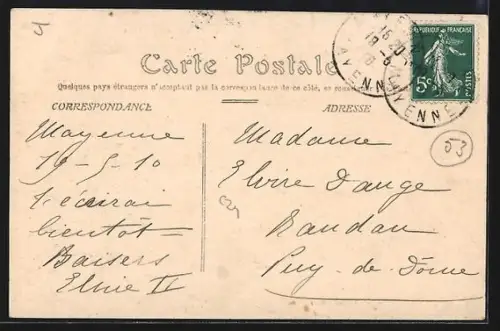 Carte Postale
Quelques pays étrangers n'acceptant pas la correspondance de ce côté, se
CORRESPONDANCE
ADRESSE
RÉPUBLIQUE FRANÇAISE
5c
POSTES
MAYENNE
53
Mayenne
19-5-10
t'écrirai
bientôt
Baisers
Madame
Elvire Dauge
Randan
Puy-de-Dôme